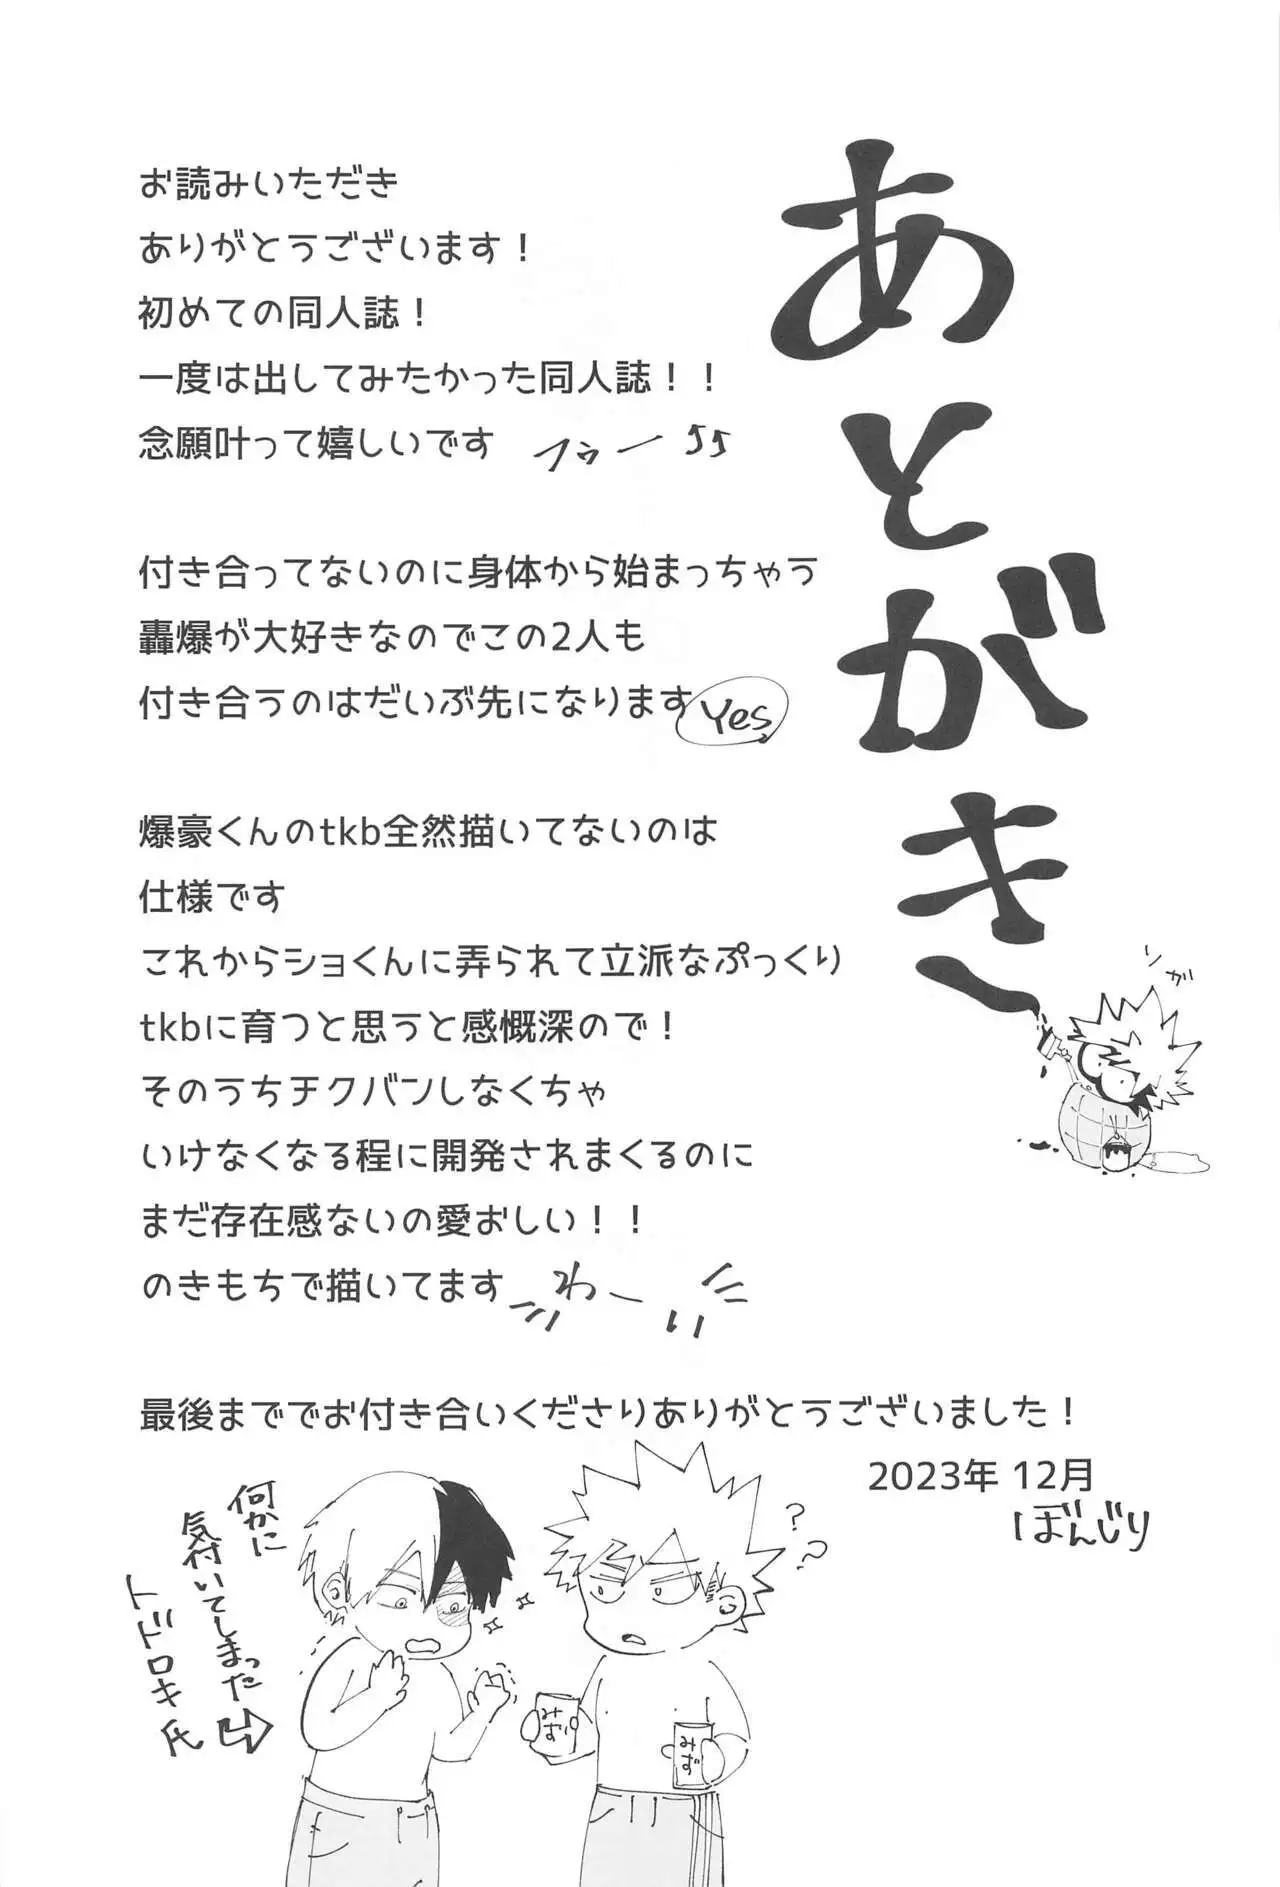 あとがき
お読みいただき
ありがとうございます！
初めての同人誌！
一度は出してみたかった同人誌！！
念願叶って嬉しいです フゥー
付き合ってないのに身体から始まっちゃう
轟爆が大好きなのでこの2人も
付き合うのはだいぶ先になります Yes
爆豪くんのtkb全然描いてないのは
仕様です
これからショくんに弄られて立派なぷっくり
tkbに育つと思うと感慨深のので！
そのうちチクバンしなくちゃ
いけなくなる程に開発されまくるのに
まだ存在感ないの愛おしい！！
のきもちで描いてます わー
りが
最後まででお付き合いくださりありがとうございました！
2023年 12月
ぼんじり
何かに
気付いてしまった
トドロキ氏
??
みず
みず